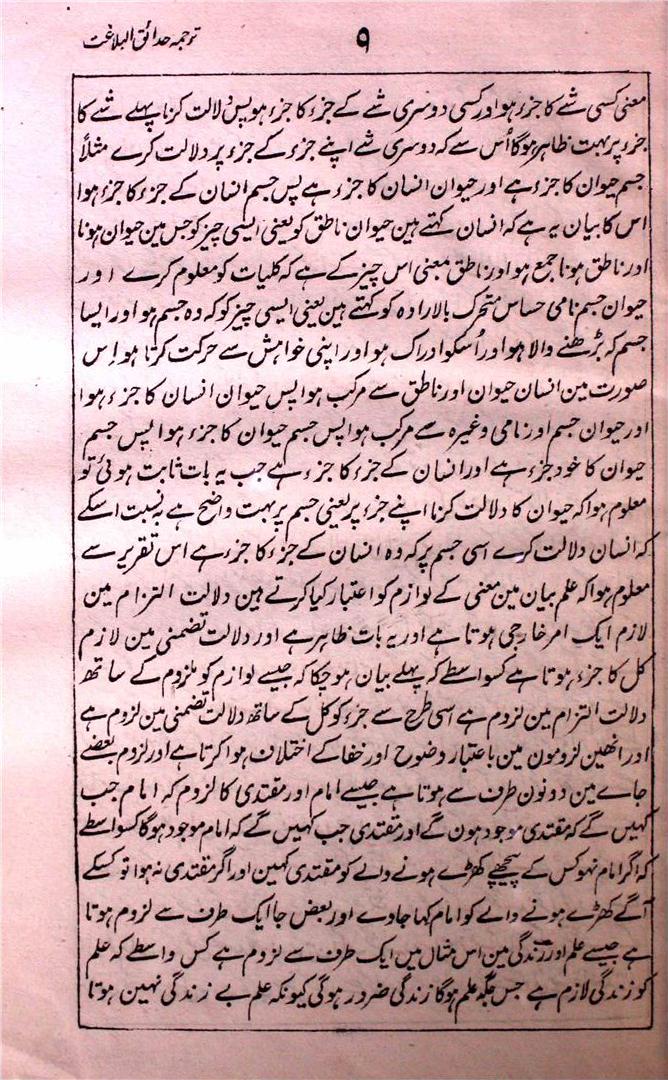 ترجمہ حدائق البلاغت
۹
معنی کسی شے کا جزء ہو اور کسی دوسری شے کے جزء کا جزء ہو پس دلالت کرنا پہلے شے کا
جزء پر بہت ظاہر ہوگا اُس سے کہ دوسری شے اپنے جزء کے جزء پر دلالت کرے مثلاً
جسم حیوان کا جزء ہے اور حیوان انسان کا جزء ہے پس جسم انسان کے جزء کا جزء ہوا
اس کا بیان یہ ہے کہ انسان کہتے ہین حیوان ناطق کو یعنی ایسی چیز کو جس مین حیوان ہونا
اور ناطق ہونا جمع ہو اور ناطق بمعنی اس چیز کے ہے کہ کلیات کو معلوم کرے اور
حیوان جسم نامی حساس متحرک بالارادہ کو کہتے ہین یعنی ایسی چیز کو کہ وہ جسم ہو اور ایسا
جسم کہ بڑھنے والا ہو اور اُسکو ادراک ہو اور اپنی خواہش سے حرکت کرتا ہو اِس
صورت مین انسان حیوان اور ناطق سے مرکب ہوا پس حیوان انسان کا جزء ہوا
اور حیوان جسم اور نامی وغیرہ سے مرکب ہوا پس جسم حیوان کا جزء ہوا پس جسم
حیوان کا خود جزء ہے اور انسان کے جزء کا جزء ہے جب یہ بات ثابت ہوئی تو
معلوم ہوا کہ حیوان کا دلالت کرنا اپنے جزء پر یعنی جسم پر بہت واضح ہے بہ نسبت اسکے
کہ انسان دلالت کرے اسی جسم پر کہ وہ انسان کے جزء کا جزء ہے اس تقریر سے
معلوم ہوا کہ علم بیان مین معنی کے لوازم کو اعتبار کیا کرتے ہین دلالت التزام مین
لازم ایک امر خارجی ہوتا ہے اور یہ بات ظاہر ہے اور دلالت تضمنی مین لازم
کل کا جزء ہوتا ہے کسواسطے کہ پہلے بیان ہو چکا کہ جیسے لوازم کو ملزوم کے ساتھ
دلالت التزام مین لزوم ہے اسی طرح سے جزء کو کل کے ساتھ دلالت تضمنی مین لزوم ہے
اور انھین لزومون مین باعتبار وضوح اور خفا کے اختلاف ہوا کرتا ہے اور لزوم بعضے
جاے مین دونون طرف سے ہوتا ہے جیسے امام اور مقتدی کا لزوم کہ امام جب
کہیں گے کہ مقتدی موجود ہون گے اور مقتدی جب کہیں گے کہ امام موجود ہوگا کسواسطے
کہ اگر امام نہو کس کے پیچھے کھڑے ہونے والے کو مقتدی کہین اور اگر مقتدی نہ ہوا تو کسکے
آگے کھڑے ہونے والے کو امام کہا جاوے اور بعض جا ایک طرف سے لزوم ہوتا
ہے جیسے علم اور زندگی مین اس مثال میں ایک طرف سے لزوم ہے کس واسطے کہ علم
کو زندگی لازم ہے جس جگہ علم ہوگا زندگی ضرور ہوگی کیونکہ علم بے زندگی نہین ہوتا